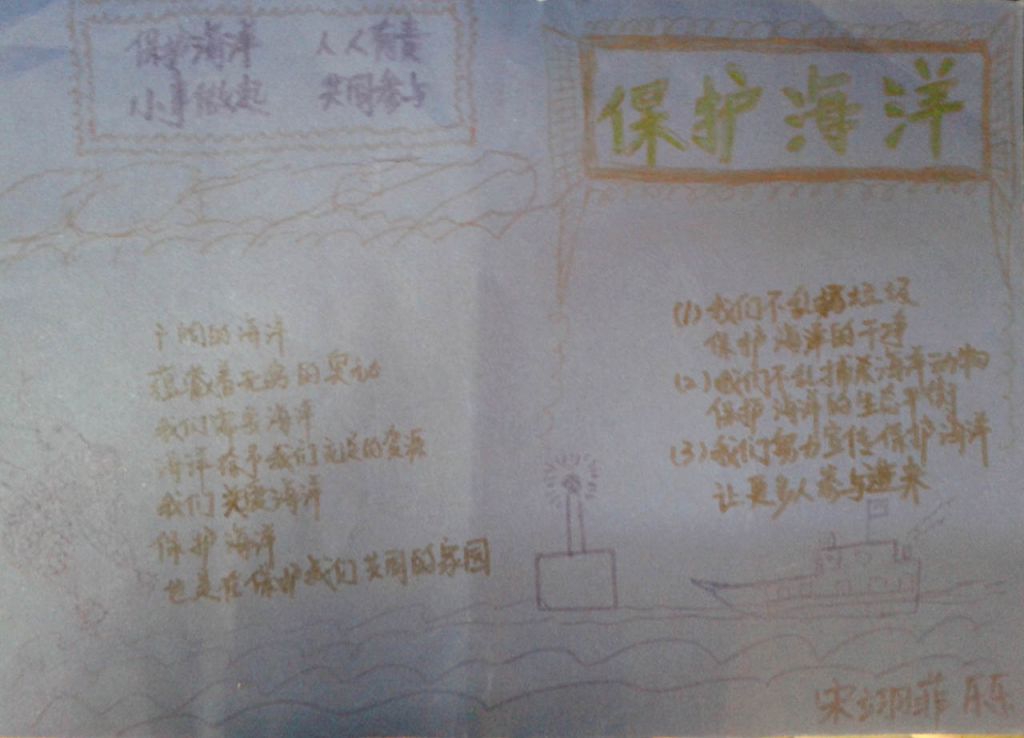 保护海洋 人人有责
小手做起 共同参与
保护海洋
广阔的海洋
蕴藏着无穷的奥秘
我们需要海洋
海洋给予我们充足的资源
我们关爱海洋
保护海洋
也是在保护我们共同的家园
(1)我们不乱扔垃圾
保护海洋的干净
(2)我们不乱捕杀海洋动物
保护海洋的生态平衡
(3)我们努力宣传保护海洋
让更多人参与进来
宋